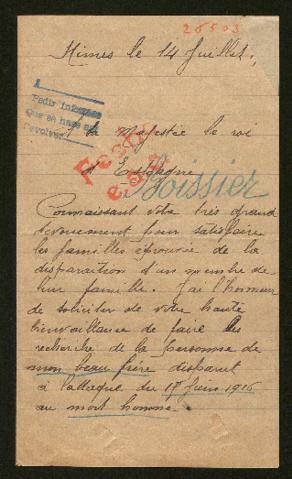 26503
Nimes le 14 Juillet.,
Pedir informes
Que se hace
A la Majestée le roi
d'Espagne
Boissier
Connaissant votre très grand
devouement pour satisfaire
les familles éprouvée de la
disparaition d'un membre de
leur famille. J'ai l'honneur
de soliciter de votre haute
bienvaillance de faire les
recherche de la personne de
mon beau frère disparut
à l'attaque du 17 Juin 1916
au mort homme